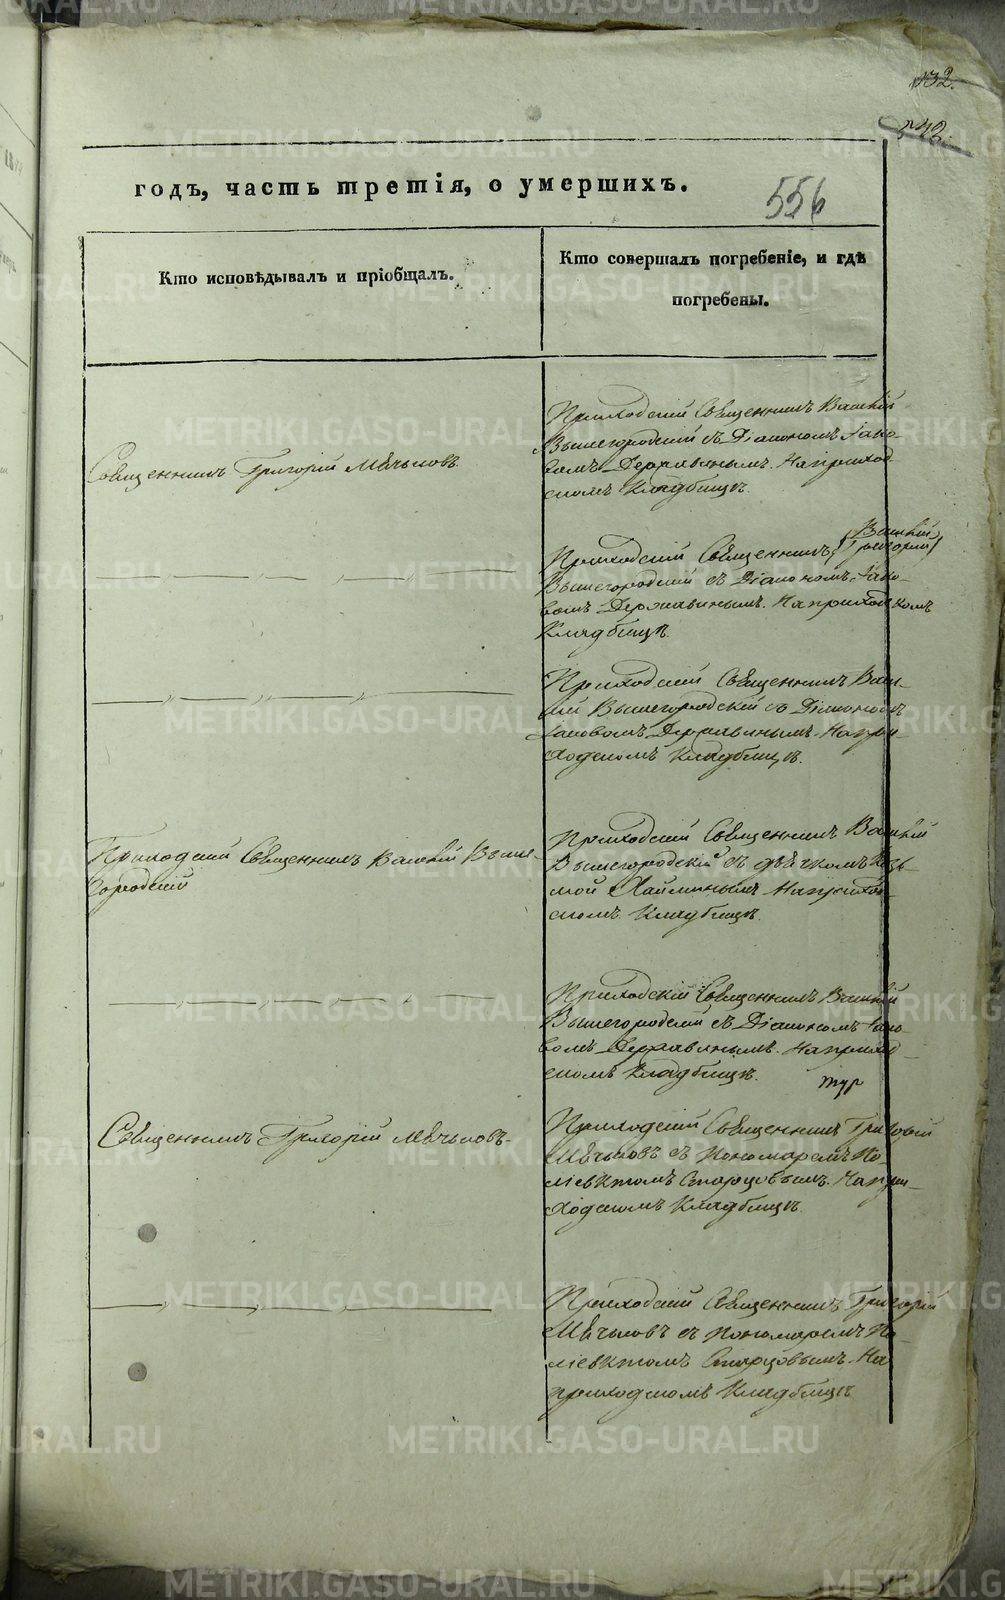 132.
годъ, часть третія, о умершихъ.
556
Кто исповѣдывалъ и пріобщалъ.
Кто совершалъ погребеніе, и гдѣ
погребены.
Священникъ Григорій Мѣчьковъ
Приходскій Священникъ Василій
Вышегородскій съ Діакономъ Іако-
вомъ Державинымъ. На приход-
скомъ Кладбищѣ.
Василій
Приходскій Священникъ (Григорій)
Вышегородскій съ Діакономъ Іако-
вомъ Державинымъ. На приходскомъ
Кладбищѣ.
Приходскій Священникъ Васи-
лій Вышегородскій съ Діакономъ
Іаковомъ Державинымъ. На при-
ходскомъ Кладбищѣ.
Приходскій Священникъ Василій Выше-
городскій
Приходскій Священникъ Василій
Вышегородскій съ дьячкомъ Козь-
мой На приход-
скомъ Кладбищѣ.
Приходскій Священникъ Василій
Вышегородскій съ Діакономъ Іако-
вомъ Державинымъ. На приход-
скомъ Кладбищѣ.
Священникъ Григорій Мѣчьковъ.
Приходскій Священникъ Григорій
Мѣчьковъ съ Пономаремъ По-
ліевктомъ Старцовымъ. На при-
ходскомъ Кладбищѣ.
Приходскій Священникъ Григорій
Мѣчьковъ съ Пономаремъ По-
ліевктомъ Старцовымъ. На
приходскомъ Кладбищѣ
METRIKI.GASO-URAL.RU